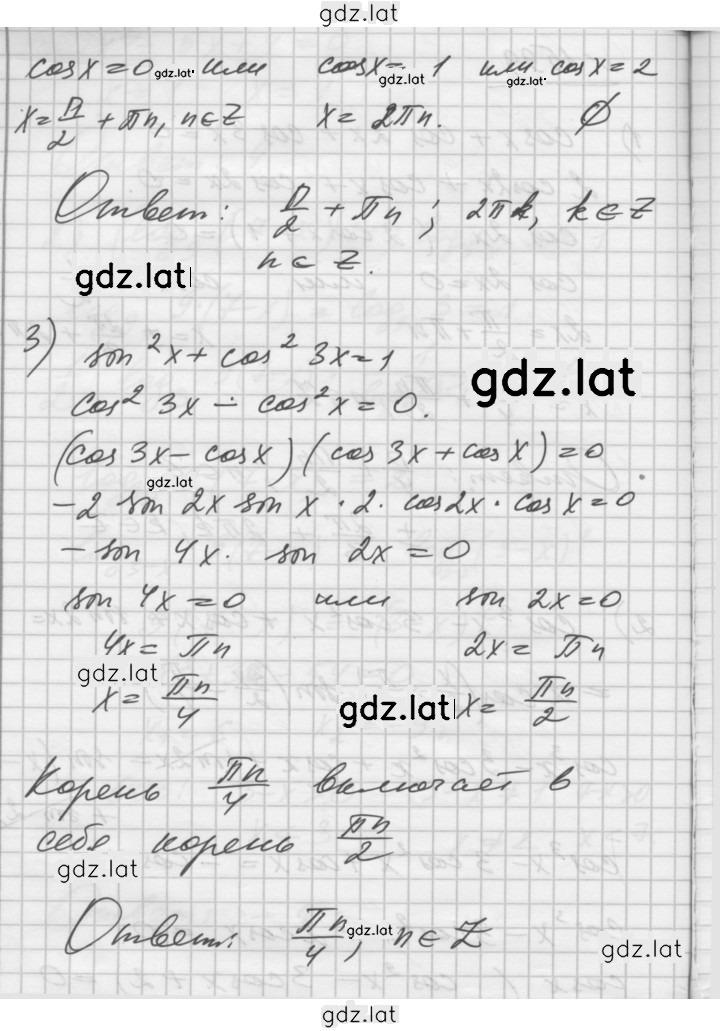 gdz.lat
cos x = 0 gdz.lat или cos x = 1 gdz.lat или cos x = 2 gdz.lat
x = π/2 + πn, n ∈ Z x = 2πn. ∅
Ответ: π/2 + πn; 2πk, k ∈ Z
n ∈ Z.
gdz.lat
3) sin²x + cos² 3x = 1
gdz.lat
cos² 3x - cos²x = 0.
(cos 3x - cos x) (cos 3x + cos x) = 0
gdz.lat
-2 sin 2x sin x · 2 · cos 2x · cos x = 0
- sin 4x · sin 2x = 0
sin 4x = 0 или sin 2x = 0
4x = πn 2x = πn
gdz.lat
x = πn/4 gdz.lat x = πn/2
Корень πn/4 включает в
себя корень πn/2
gdz.lat
Ответ: πn/4, gdz.lat n ∈ Z
gdz.lat
gdz.lat